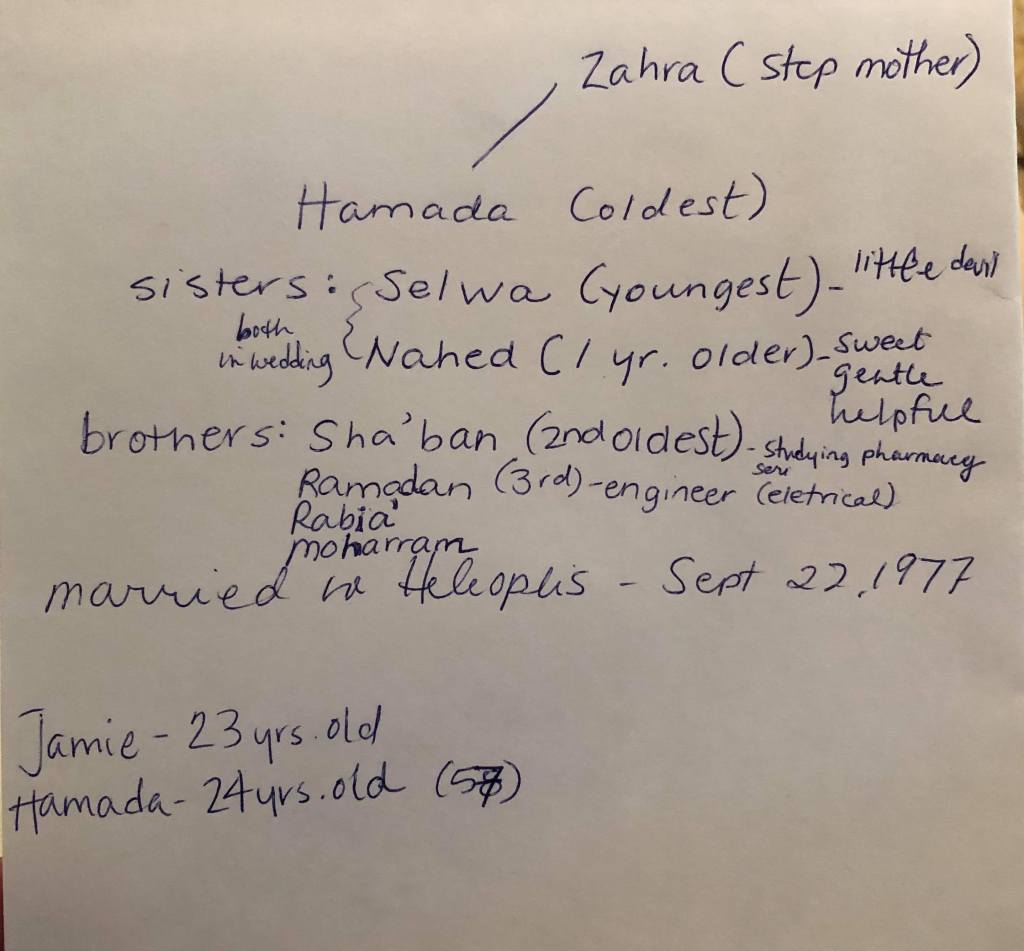 Zahra (step mother)
Hamada (oldest)
sisters: { Selwa (youngest) - little devil
both in wedding
Nahed (1 yr. older) - sweet
gentle
helpful
brothers: Sha'ban (2nd oldest) - studying pharmacy
Ramadan (3rd) - engineer (eletrical)
Rabia'
moharram
married in Heleoplis - Sept 22, 1977
Jamie - 23 yrs. old
Hamada - 24 yrs. old